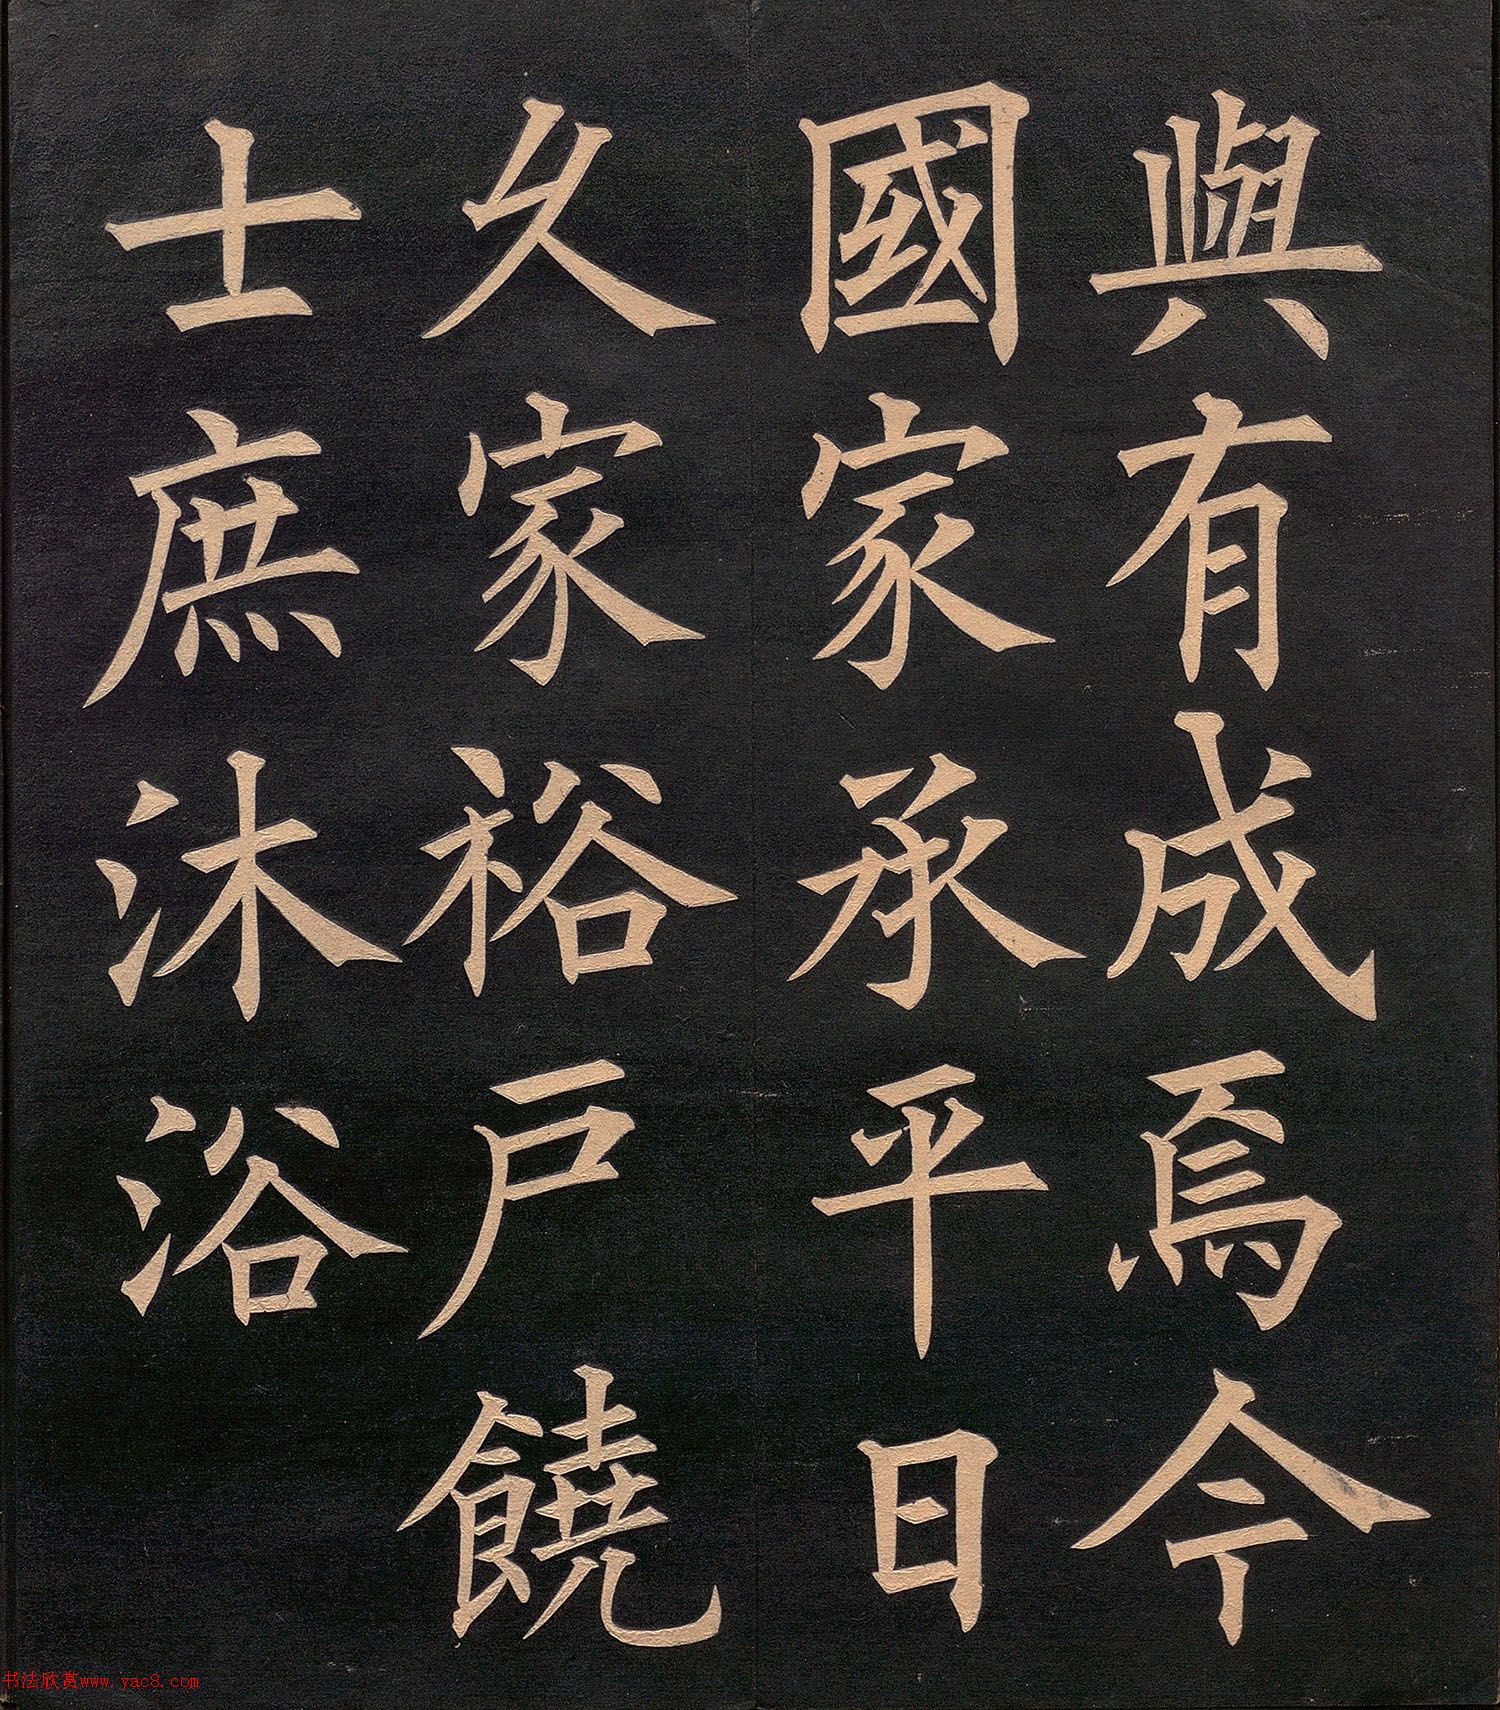 與有成焉今
國家承平日
久家裕戶饒
士庶沐浴
书法欣赏www.yac8.com